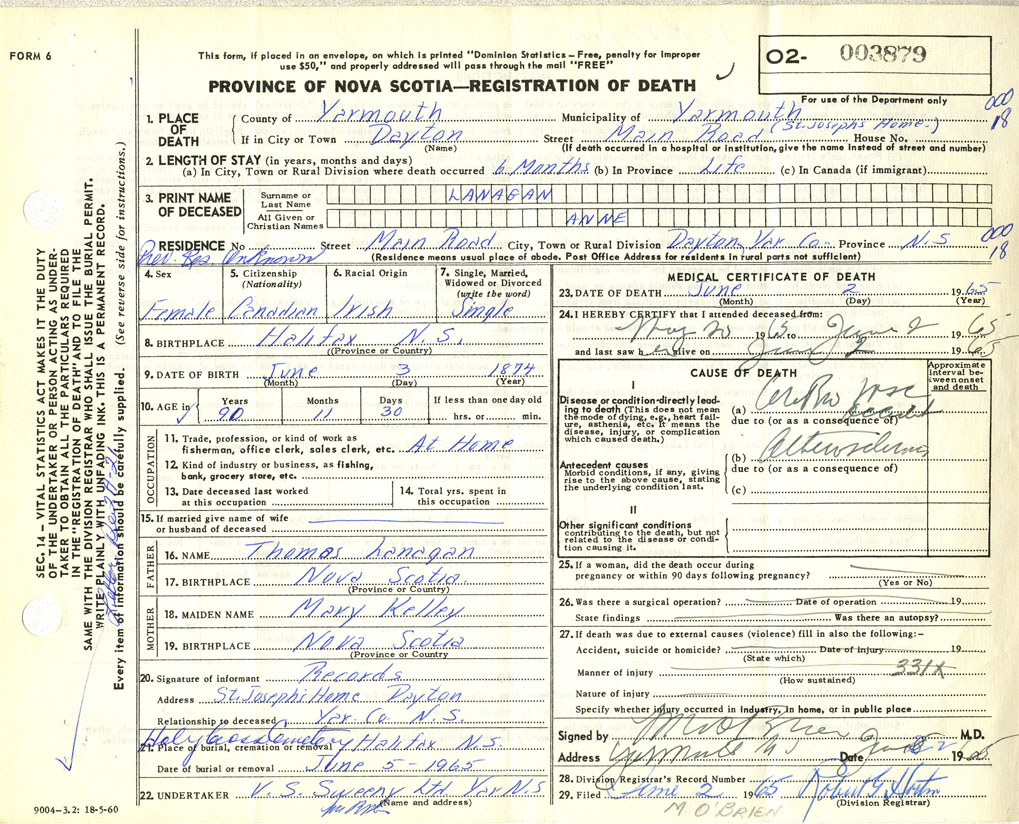 FORM 6
This form, if placed in an envelope, on which is printed "Dominion Statistics — Free, penalty for improper
use $50," and properly addressed will pass through the mail "FREE"
O2- 003879
PROVINCE OF NOVA SCOTIA—REGISTRATION OF DEATH
For use of the Department only
1. PLACE OF DEATH
County of Yarmouth Municipality of Yarmouth 000
If in City or Town Dayton Street Main Road (St. Josephs Home.) House No. 18
(Name) (If death occurred in a hospital or institution, give the name instead of street and number)
2. LENGTH OF STAY (in years, months and days)
(a) In City, Town or Rural Division where death occurred 6 Months (b) In Province Life (c) In Canada (if immigrant)
3. PRINT NAME OF DECEASED
Surname or Last Name LANAGAN
All Given or Christian Names ANNE
RESIDENCE No Street Main Road City, Town or Rural Division Dayton, Yar. Co. Province N.S 000
Prev. Res. Unknown (Residence means usual place of abode. Post Office Address for residents in rural parts not sufficient) 18
4. Sex
Female
5. Citizenship (Nationality)
Canadian
6. Racial Origin
Irish
7. Single, Married, Widowed or Divorced (write the word)
Single
8. BIRTHPLACE Halifax N.S.
(Province or Country)
9. DATE OF BIRTH June 3 1874
(Month) (Day) (Year)
10. AGE in Years Months Days If less than one day old
90 11 30 hrs. or min.
OCCUPATION
11. Trade, profession, or kind of work as
fisherman, office clerk, sales clerk, etc. At Home
12. Kind of industry or business, as fishing,
bank, grocery store, etc.
13. Date deceased last worked
at this occupation
14. Total yrs. spent in
this occupation
15. If married give name of wife
or husband of deceased
FATHER
16. NAME Thomas Lanagan
17. BIRTHPLACE Nova Scotia
(Province or Country)
MOTHER
18. MAIDEN NAME Mary Kelley
19. BIRTHPLACE Nova Scotia
(Province or Country
20. Signature of informant Records
Address St. Josephs Home Dayton
Relationship to deceased Yar. Co. N.S.
Holy Cross Cemetery
21. Place of burial, cremation or removal Halifax N.S.
Date of burial or removal June 5 - 1965
22. UNDERTAKER V. S. Sweeny Ltd Yar N.S
(Name and address)
MEDICAL CERTIFICATE OF DEATH
23. DATE OF DEATH June 2 1965
(Month) (Day) (Year)
24. I HEREBY CERTIFY that I attended deceased from:
May 20 1965 to June 2 1965
and last saw h er alive on June 2 1965
CAUSE OF DEATH
Approximate interval between onset and death
I
Disease or condition directly leading to death (This does not
mean the mode of dying, e.g., heart failure, asthenia, etc. It means the
disease, injury, or complication which caused death.)
(a)
due to (or as a consequence of)
Antecedent causes
Morbid conditions, if any, giving
rise to the above cause, stating
the underlying condition last.
(b)
due to (or as a consequence of)
(c)
II
Other significant conditions
contributing to the death, but not
related to the disease or condition
causing it.
25. If a woman, did the death occur during
pregnancy or within 90 days following pregnancy?
(Yes or No)
26. Was there a surgical operation? Date of operation 19
State findings Was there an autopsy?
27. If death was due to external causes (violence) fill in also the following:—
Accident, suicide or homicide? Date of injury 19
(State which)
Manner of injury 331X
(How sustained)
Nature of injury
Specify whether injury occurred in industry, in home, or in public place
Signed by M.D.
Address Yarmouth NS Date June 2 1965
28. Division Registrar's Record Number 82
29. Filed June 2 1965
(Division Registrar)
M. O'BRIEN
SEC. 14 — VITAL STATISTICS ACT MAKES IT THE DUTY
OF THE UNDERTAKER OR PERSON ACTING AS UNDER-
TAKER TO OBTAIN ALL THE PARTICULARS REQUIRED
IN THE "REGISTRATION OF DEATH" AND TO FILE THE
SAME WITH THE DIVISION REGISTRAR WHO SHALL ISSUE THE BURIAL PERMIT.
WRITE PLAINLY WITH UNFADING INK. THIS IS A PERMANENT RECORD.
Every item of information should be carefully supplied. (See reverse side for instructions.)
9004-3.2: 18-5-60